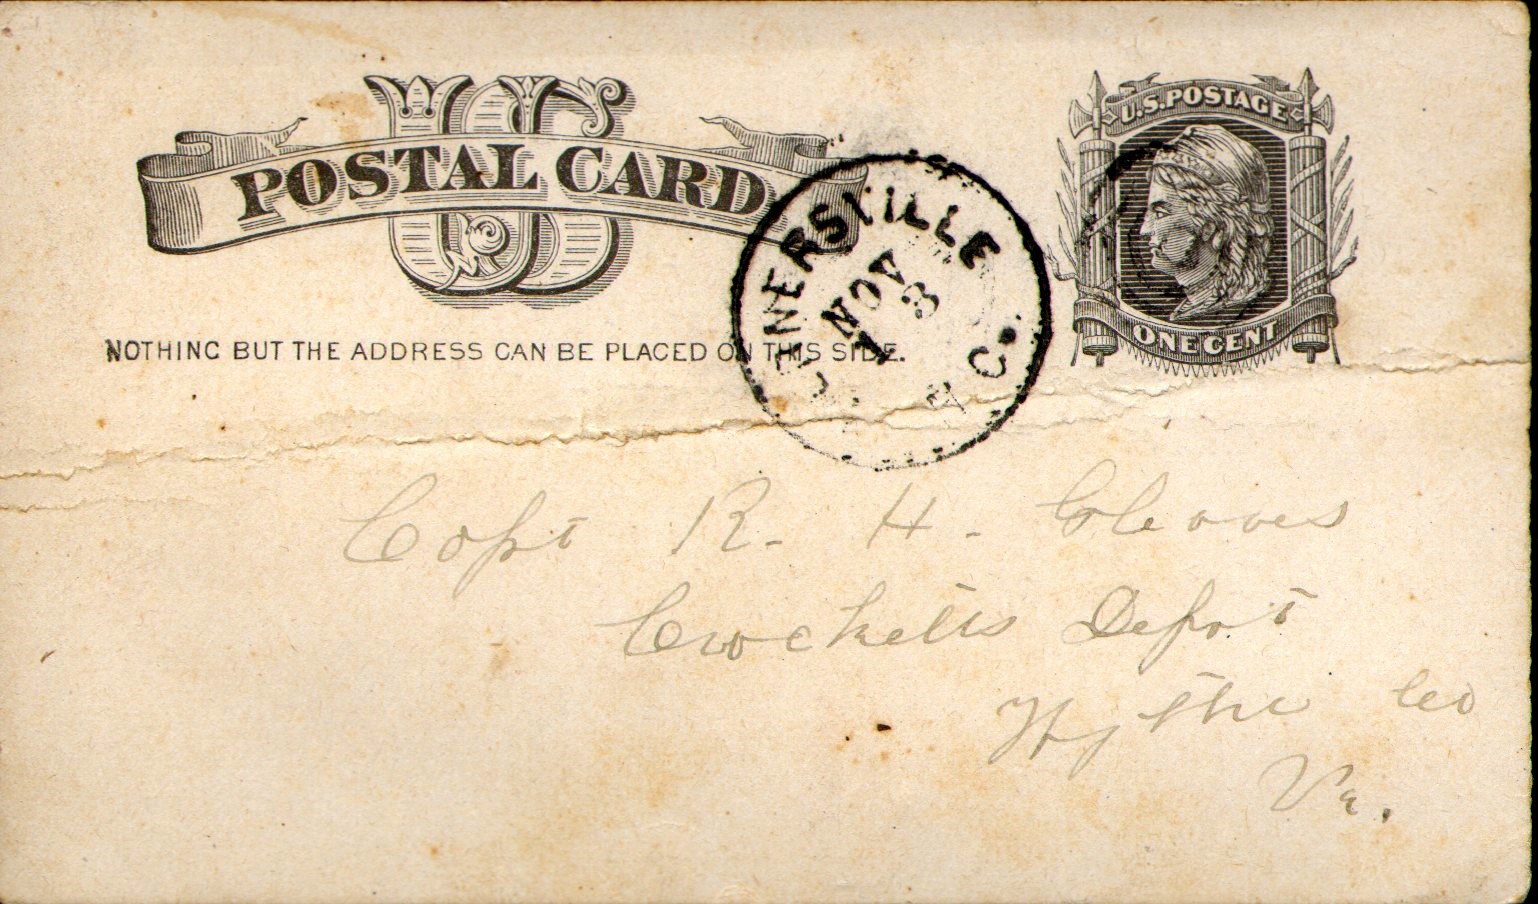 US
POSTAL CARD
U.S. POSTAGE
ONE CENT
NOTHING BUT THE ADDRESS CAN BE PLACED ON THIS SIDE.
NOV
13
C.
Capt R. H. Gleaves
Crocketts Depot
Wythe Co
Va.